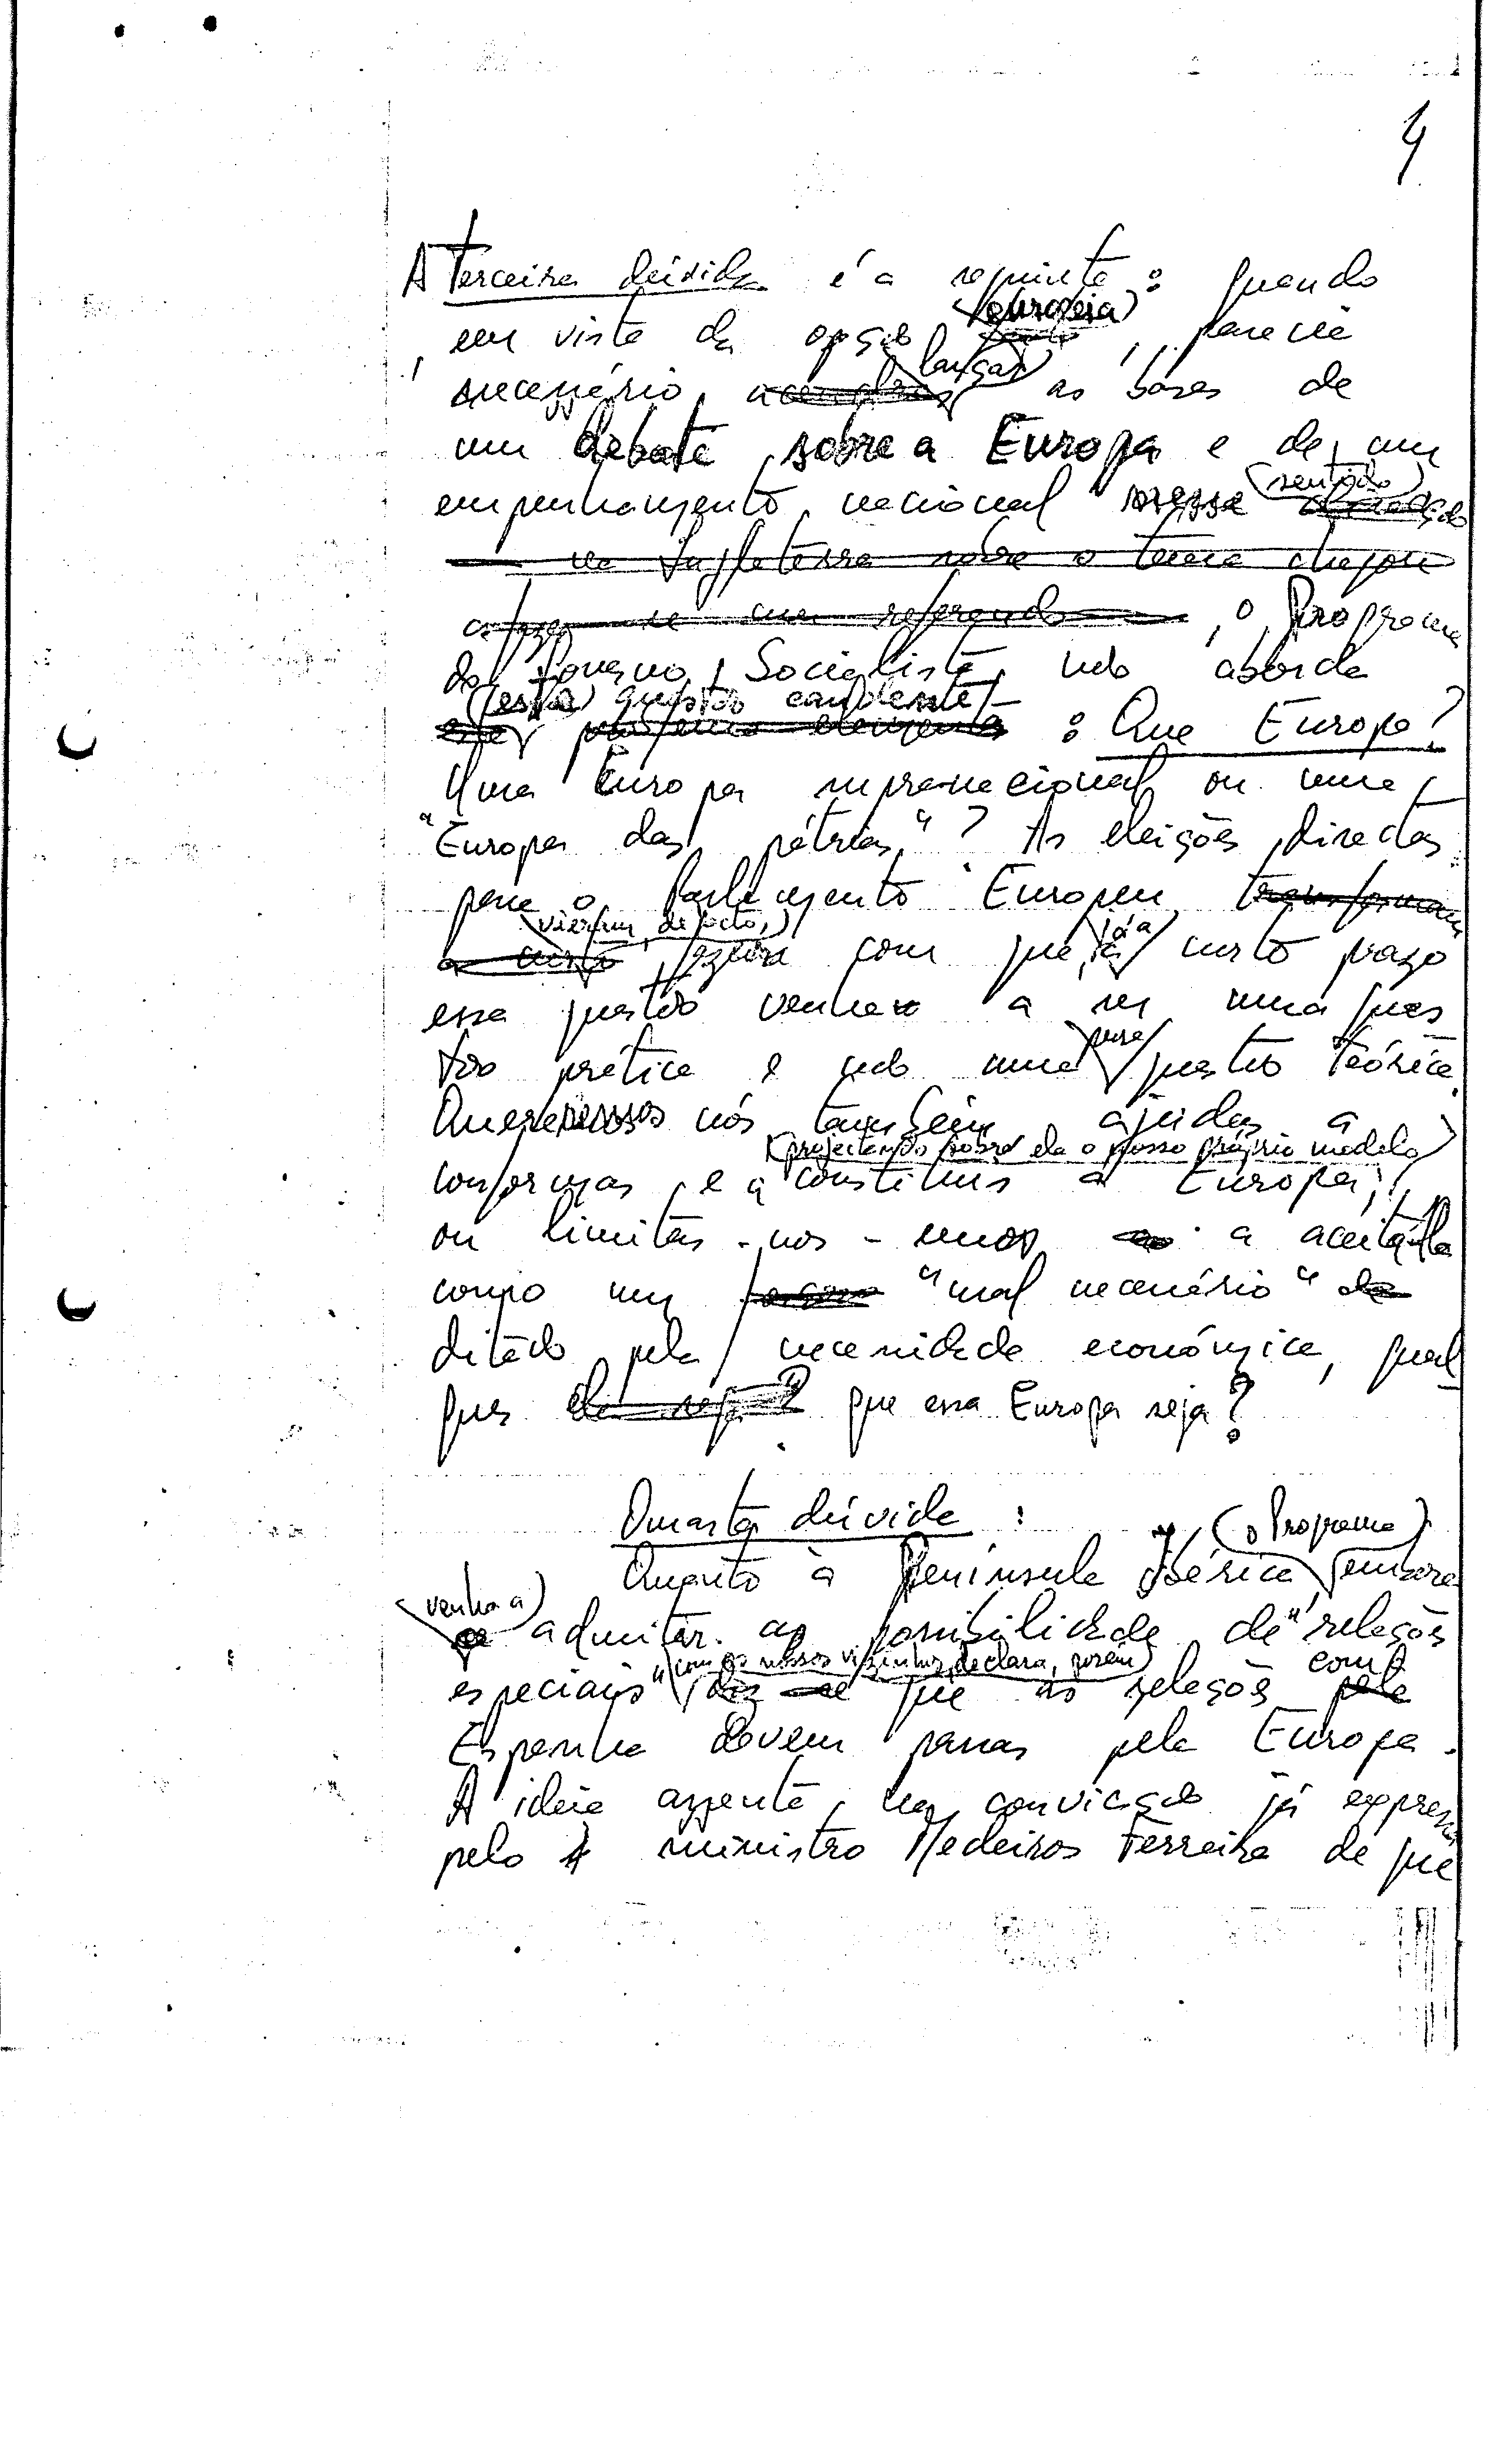 4
A Terceira dúvida é a seguinte: quando
em vista da opção (europeia), parecia
necessário (lançar) as bases de
um debate sobre a Europa e de um
empenhamento nacional nesse (sentido)
na Inglaterra sobre o tema chegou
a fazer-se um referendo, o Programa
do Governo Socialista não aborda
(esta) questão candente: Que Europa?
Uma Europa supranacional ou uma
"Europa das pátrias"? As eleições directas
para o Parlamento Europeu transformam
a curto (vieram, de facto,) fazer com que, já a curto prazo
essa questão venha a ser uma ques
tão prática e não uma pura questão teórica.
Queremos nós também ajudar a
(projectando sobre ela o nosso próprio modelo)
conformar e a constituir a Europa,
ou limitar-nos-emos a aceitá-la
como um "mal necessário"
ditado pela necessidade económica, qual
quer ela seja? que essa Europa seja?
Quarta dúvida:
Quanto à Península Ibérica, (o Programa) embora
(venha a) admitir a possibilidade de "relações
especiais" (com os nossos vizinhos, declara, porém) diz-se que as relações com a pela
Espanha devem passar pela Europa.
A ideia assenta na convicção já expressa
pelo ministro Medeiros Ferreira de que